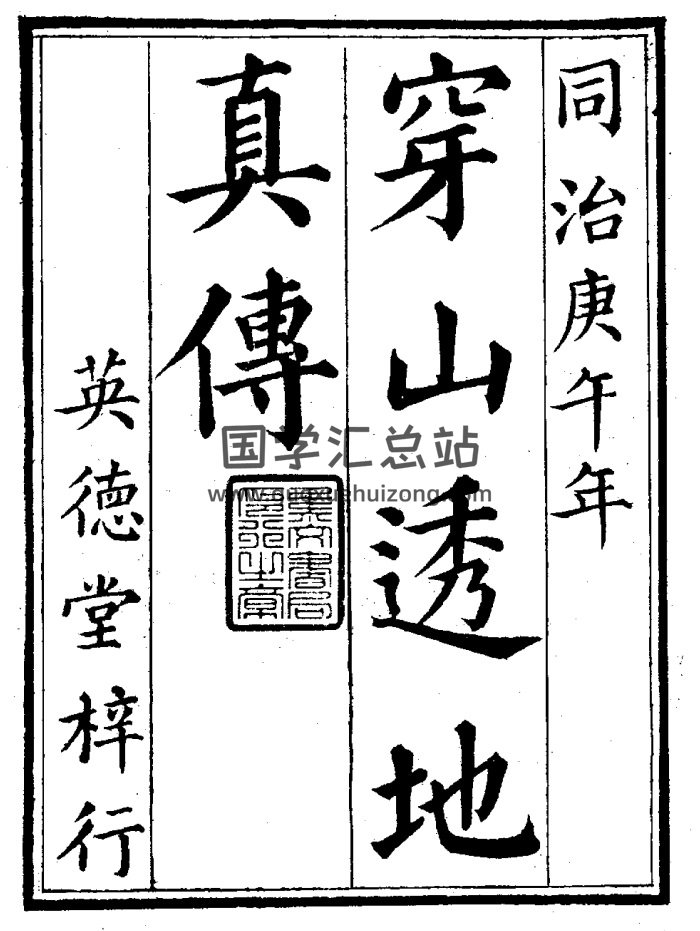 同治庚午年
穿山透地
真傳
英德堂梓行
国学汇总站
www.guoxuehuizong.com